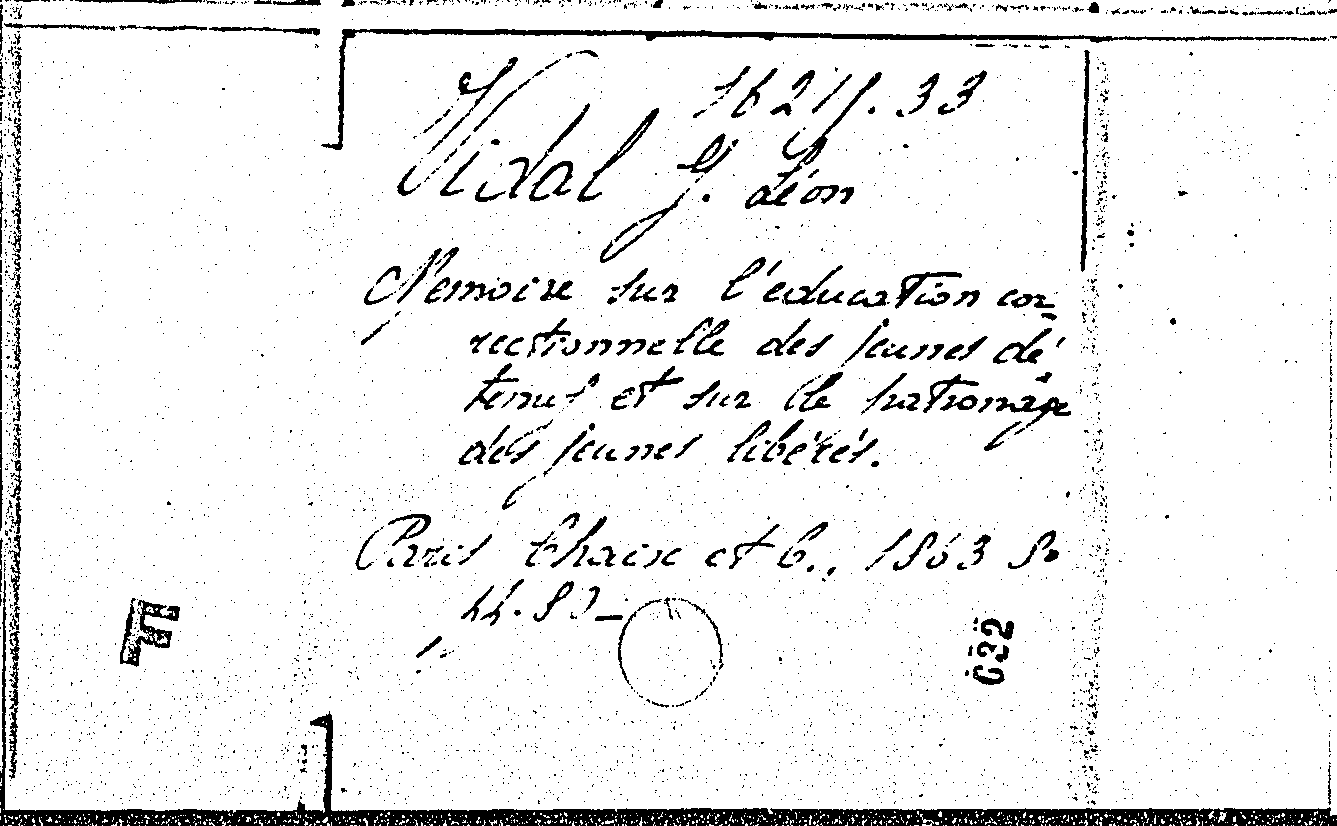 16217.33
Vidal J. Léon
Mémoire sur l'éducation cor-
rectionnelle des jeunes dé-
tenus et sur le patronage
des jeunes libérés.
Paris Chaix et C., 1863 8º
F
632